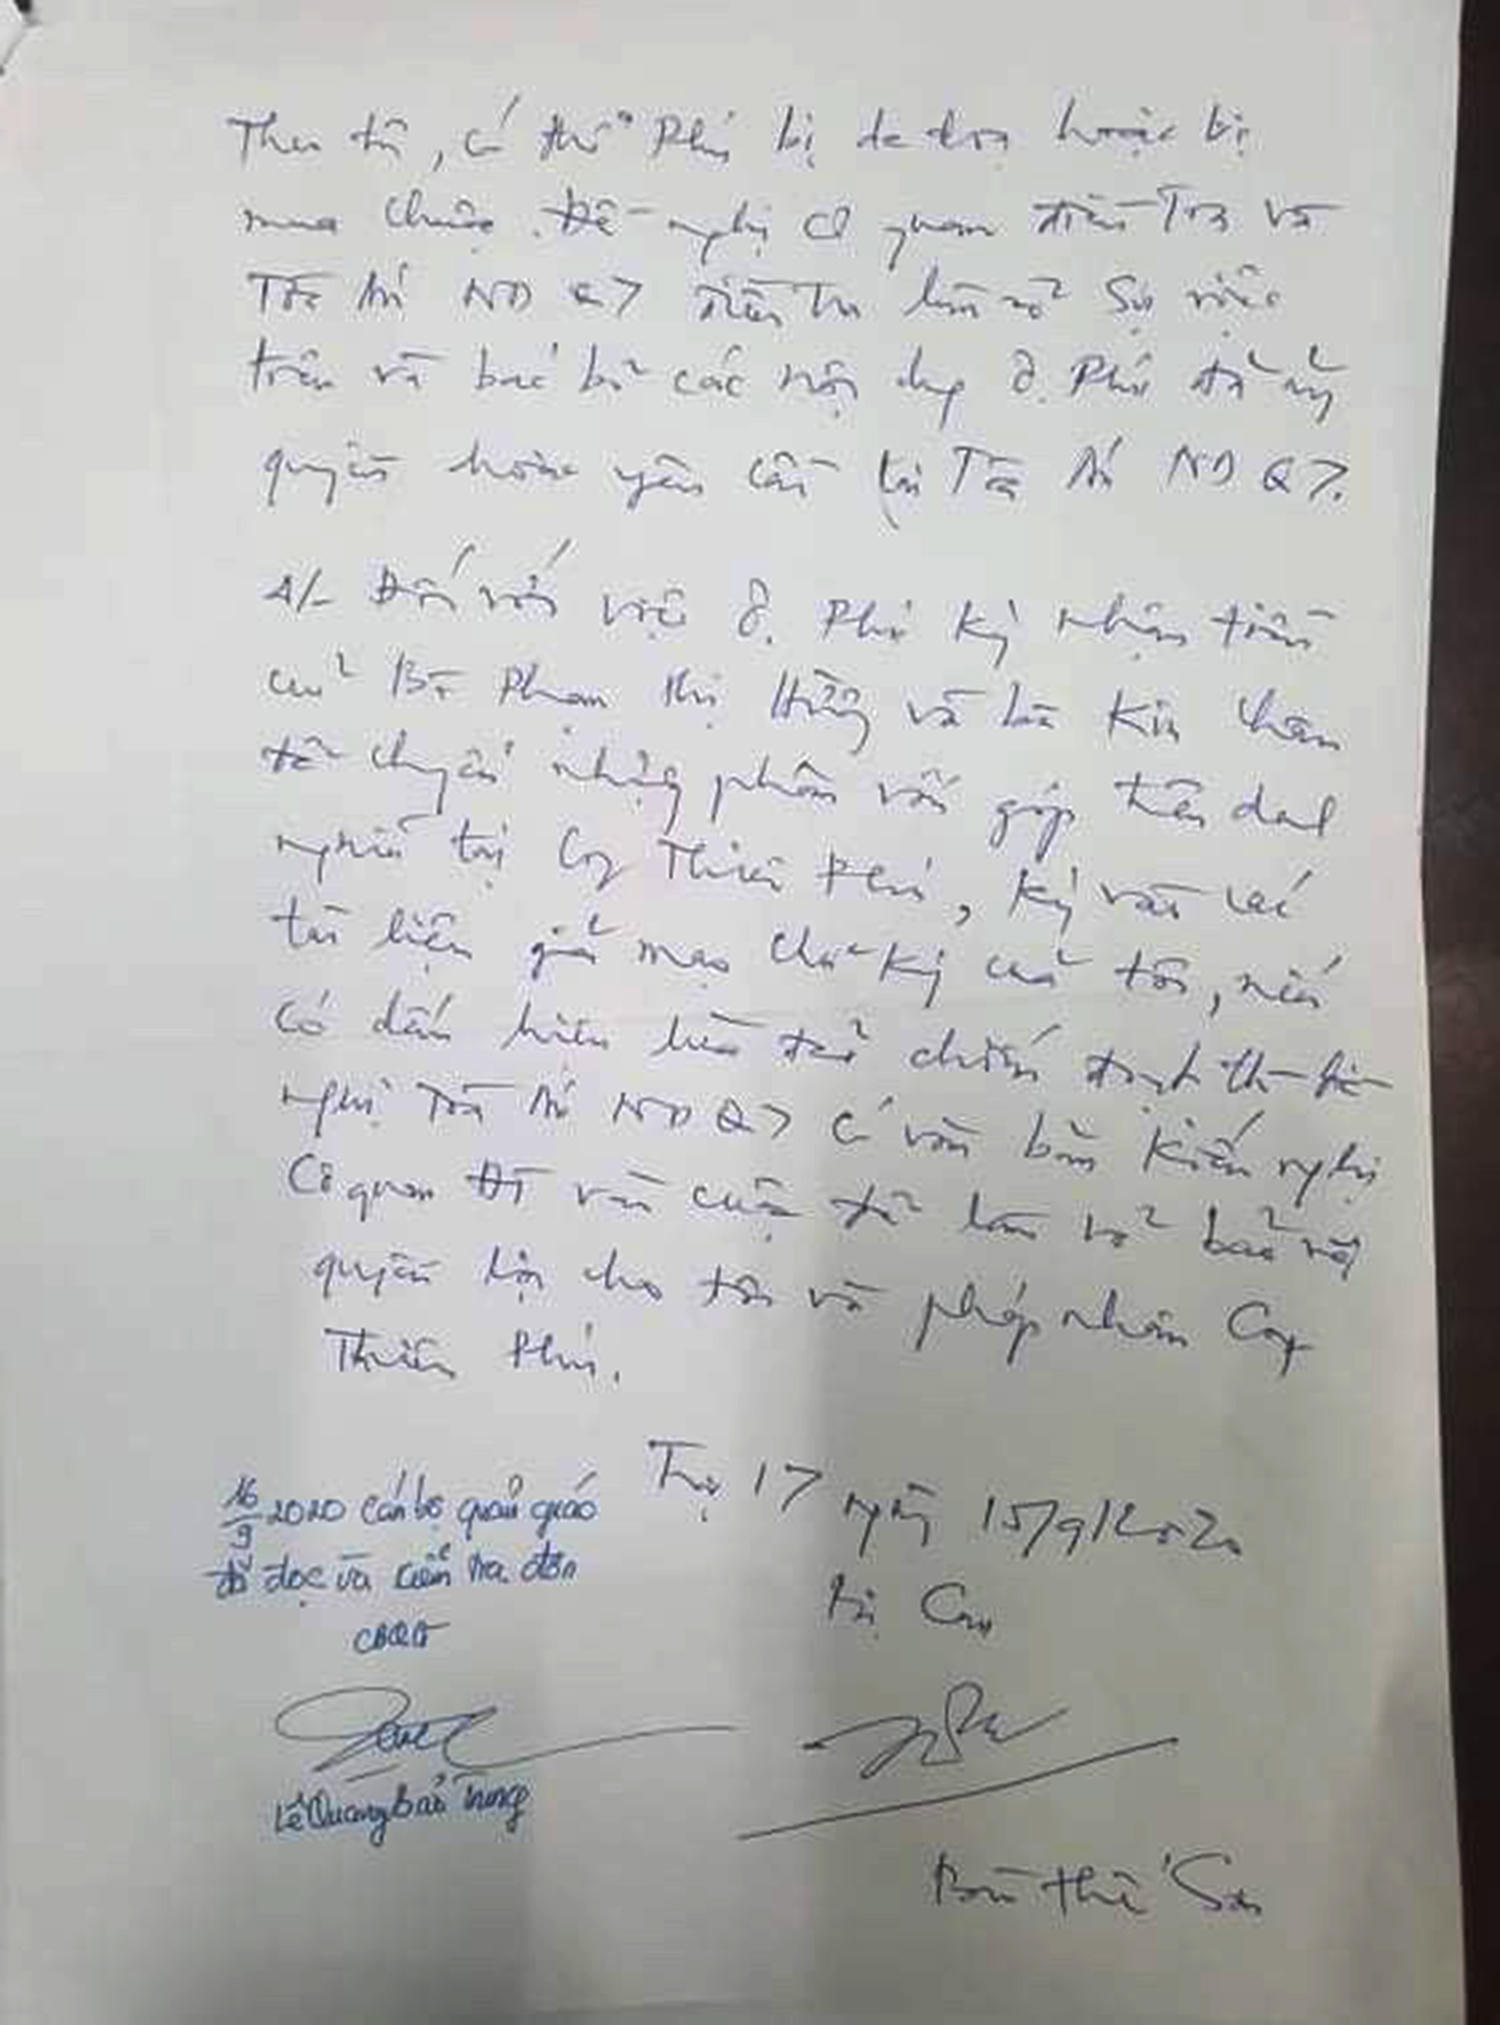 Theo tôi, có thể Phú bị đe dọa hoặc bị
mua chuộc. Đề nghị cơ quan điều Tra và
Tòa Án ND Q7 điều Tra làm rõ sự việc
trên và bác bỏ các nội dung Ô. Phú đã ủy
quyền hoặc yêu cầu tại Tòa Án ND Q7.
4/- Đối với việc Ô. Phú ký nhận tiền
của Bà Phạm thị Hồng và bà Kim
để chuyển nhượng phần vốn góp trên danh
nghĩa tại Cty Thiên Phú, ký vào các
tài liệu giả mạo chữ ký của tôi, nếu
có dấu hiệu lừa đảo chiếm đoạt th
nghị Tòa Án ND Q7 có văn bản kiến nghị
Cơ quan ĐT vào cuộc để làm rõ bảo vệ
quyền lợi cho tôi và pháp nhân Cty
Thiên Phú.
T 17 ngày 15/9/2020
16/9 2020 Cán bộ quản giáo
đã đọc và kiểm tra đơn
CBQG
Lê Quang Bảo Trung
Bùi Thế Sơn